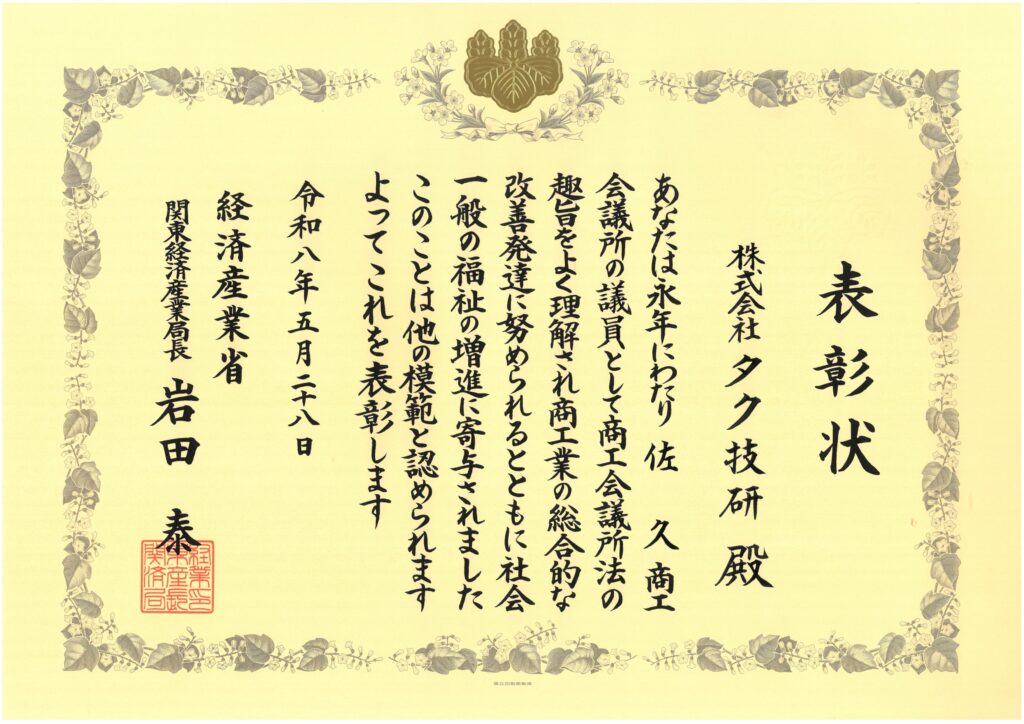 表彰状
株式会社 タク技研 殿
あなたは永年にわたり 佐 久 商工
会議所の議員として商工会議所法の
趣旨をよく理解され商工業の総合的な
改善発達に努められるとともに社会
一般の福祉の増進に寄与されました
このことは他の模範と認められます
よってこれを表彰します
令和八年五月二十八日
経済産業省
関東経済産業局長 岩田 泰